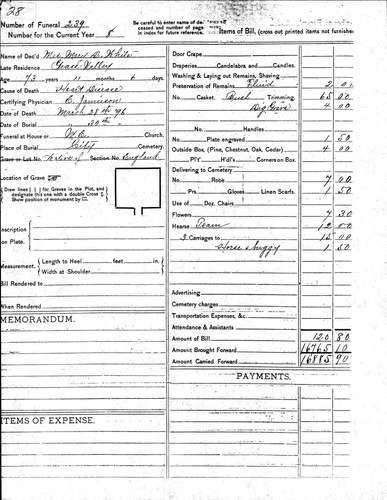 28
Number of Funeral 239
Number for the Current Year 8
Be careful to enter name of dec
ceased and number of page
in index for future reference.
Items of Bill, (cross out printed items not furnished
Name of Dec'd Mrs. D. White
Late Residence Grass Valley
Age 73 years 11 months 6 days
Cause of Death Heart Disease
Certifying Physician C. Jamieson
Date of Death March 28th 96
Date of Burial " 30th "
Funeral at House or M.E. Church.
Place of Burial City Cemetery.
Grave or Lot No. Native of Section No. England
Location of Grave
Draw lines for Graves in the Plot, and
designate this one with a double C 's
Show position of monument by
Inscription
on Plate.
Measurement. Length to Heel feet in.
Width at Shoulder
Bill Rendered to
When Rendered
MEMORANDUM.
ITEMS OF EXPENSE.
Door Crape
Draperies Candelabra and Candles.
Washing & Laying out Remains, Shaving
Preservation of Remains Fluid 2 00
No. Casket, Trimming, 65 00
Dig Grave 4 00
No. Handles
Plate engraved 1 50
Outside Box (Pine, Chestnut, Oak, Cedar) 4 00
Pl't H'dl's Corners on Box.
Delivering to Cemetery
No. Robe 7 00
Prs. Gloves Linen Scarfs. 1 50
Use of Doz. Chairs
Flowers 7 30
Hearse Team 12 00
3 Carriages to 15 00
Horse & Buggy 1 50
Advertising
Cemetery charges
Transportation Expenses, &c.
Attendance & Assistants
Amount of Bill 120 80
Amount Brought Forward 16765 10
Amount Carried Forward 16885 90
PAYMENTS.